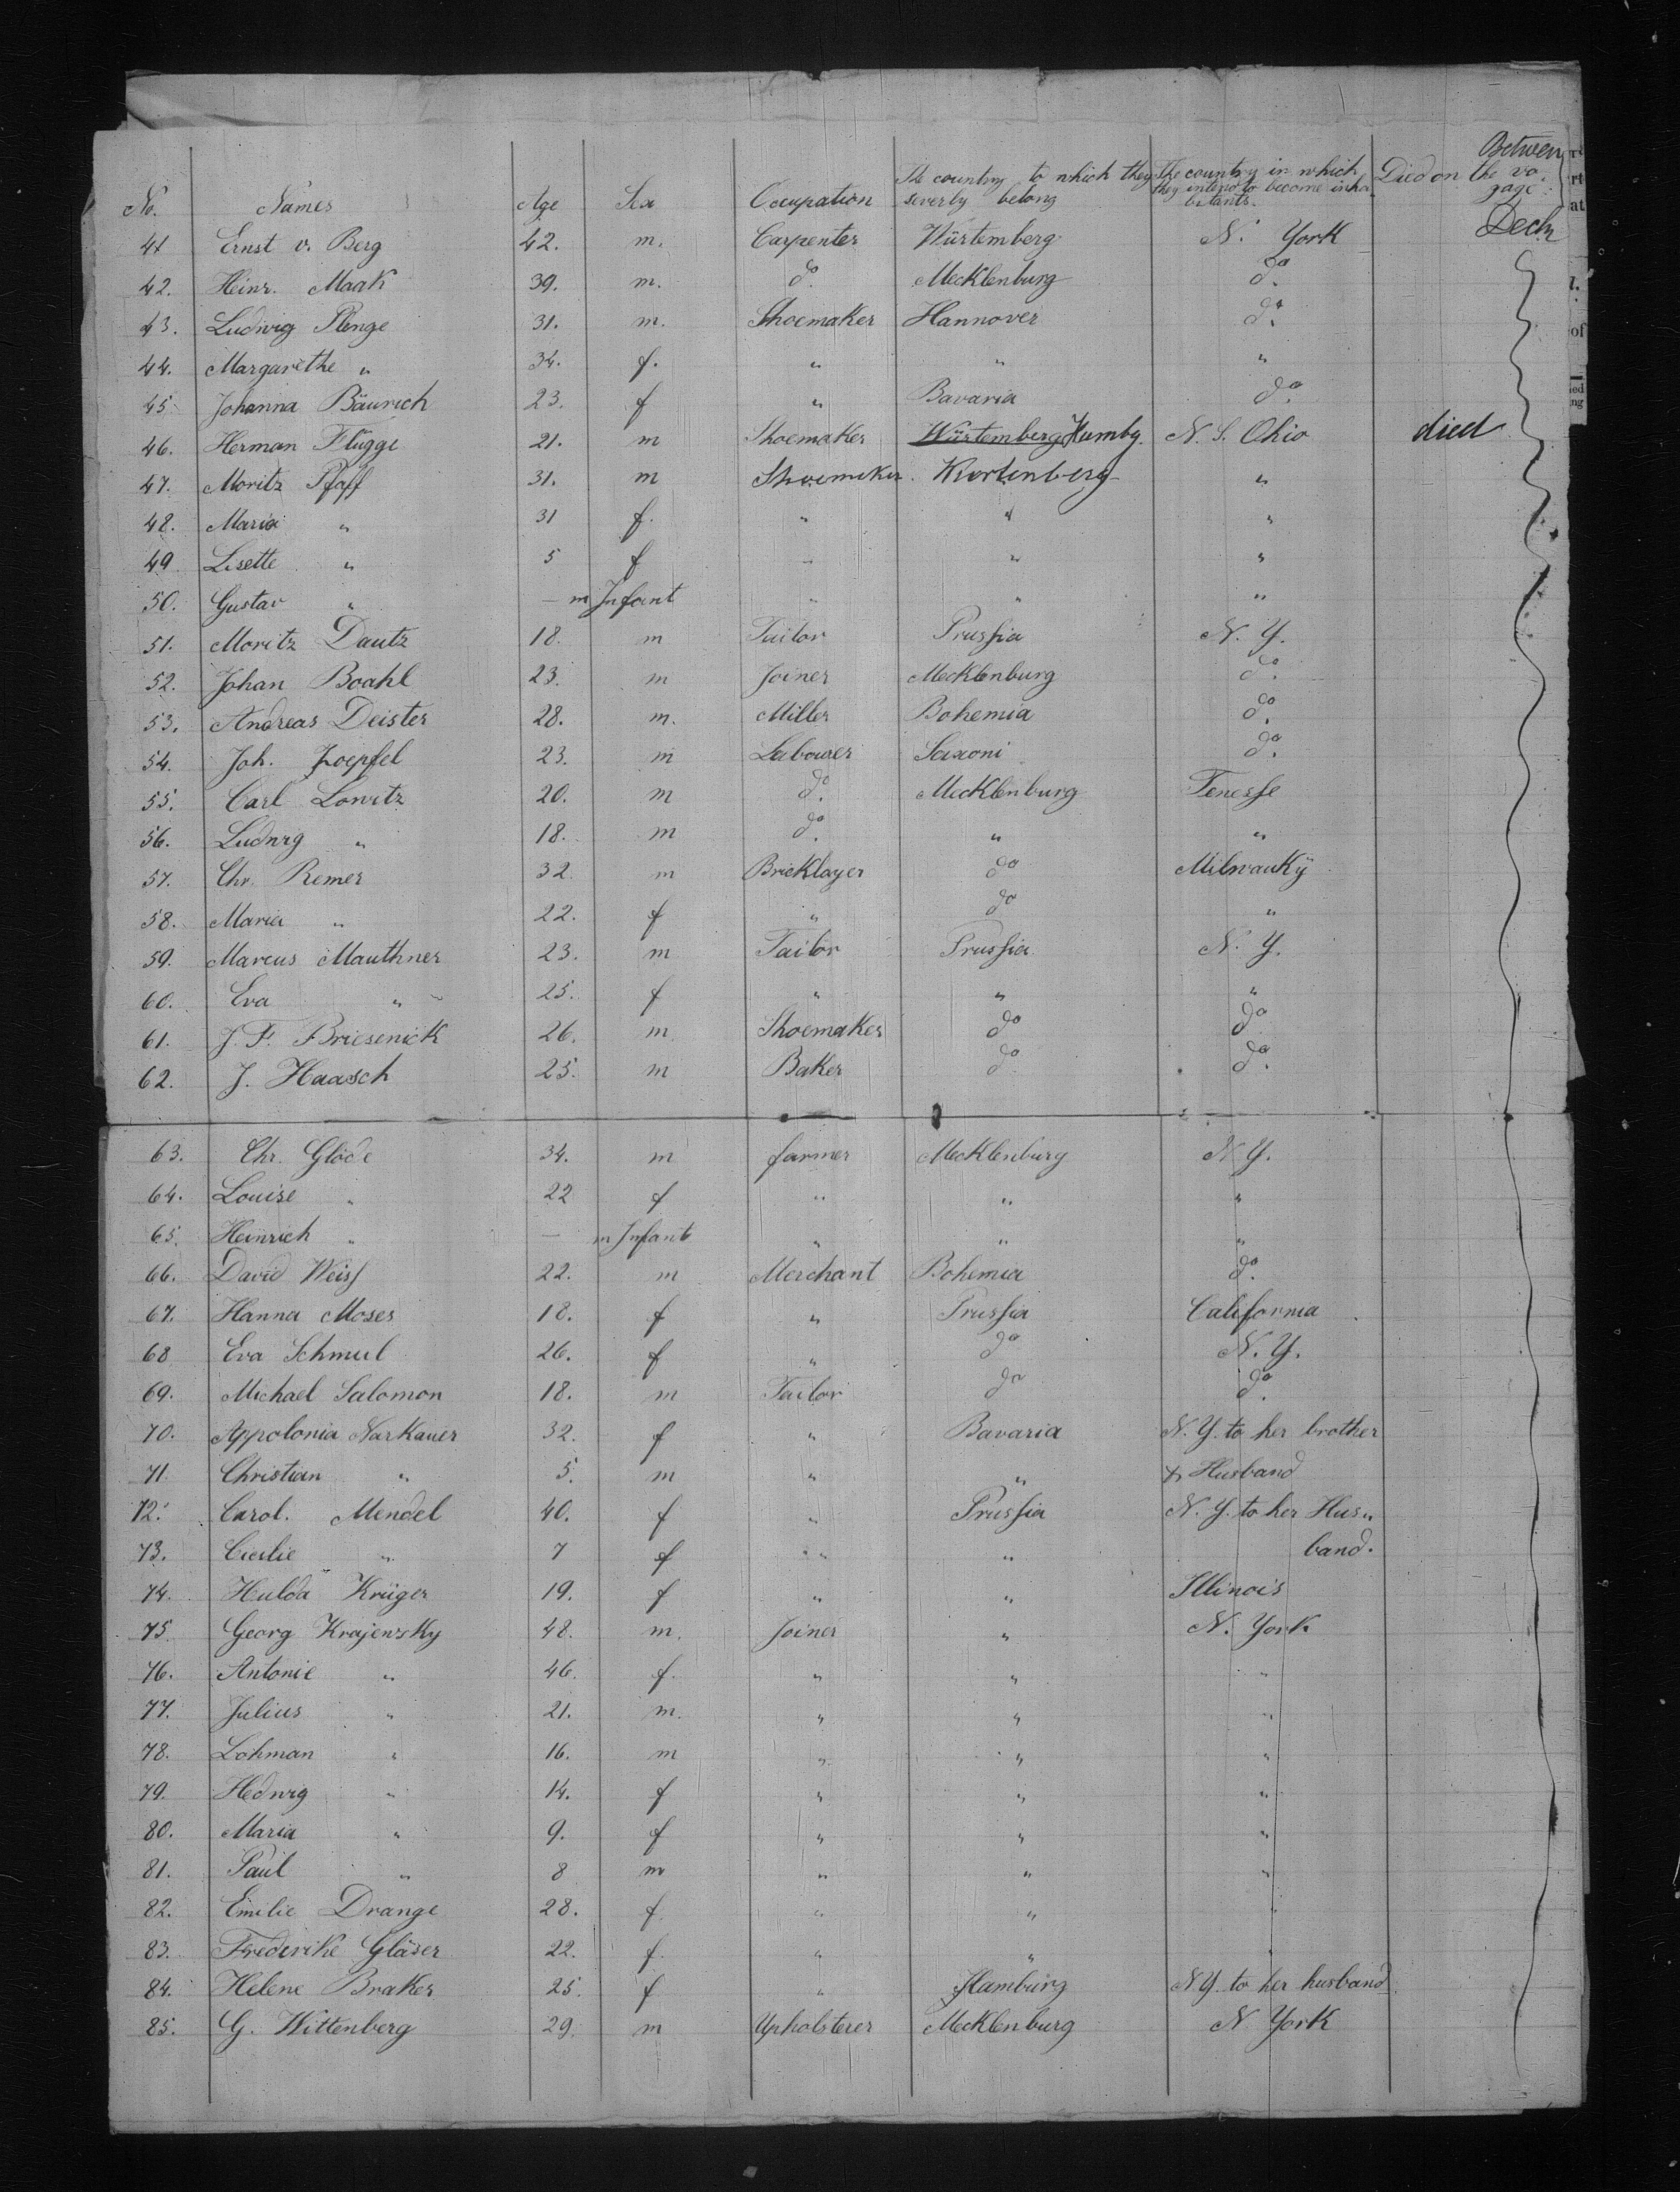 Betwen
No. Names Age Sex Occupation The country to which they severly belong The country in which they intend to become inhabitants. Died on the voyage
Deck
41 Ernst v. Berg 42. m. Carpenter Würtemberg N. York
42. Heinr. Maak 39. m. do. Mecklenburg do.
43. Ludwig Plenge 31. m. Shoemaker Hannover do.
44. Margarethe " 34. f. " " "
45 Johanna Bäurich 23. f " Bavaria do.
46. Herman Flügge 21. m Shoemaker Würtemberg Humbg. N. S. Ohio died
47. Moritz Pfaff 31. m Shoemeker. Wurtenberg "
48. Maria " 31 f. " " "
49 Lisette " 5 f " " "
50. Gustav " — m Infant " " "
51. Moritz Dautz 18. m Tailor Prussia N. Y.
52. Johan Boahl 23. m Joiner Mecklenburg do.
53. Andreas Deister 28. m. Miller Bohemia do.
54. Joh. Zoepfel 23. m Labourer Saxoni do.
55. Carl Lowitz 20. m do. Mecklenburg Tenesse
56. Ludwig " 18. m do. " "
57. Chr. Remer 32 m Bricklayer do Milwauky
58. Maria " 22. f " do "
59. Marcus Mauthner 23. m Tailor Prussia N. Y.
60. Eva " 25. f " " "
61. J. F. Briesenick 26. m Shoemaker do do.
62. J. Haasch 25. m Baker do do.
63. Chr. Glöde 34. m farmer Mecklenburg N. Y.
64. Louise " 22 f " " "
65. Heinrich " — m Infant " " "
66. David Weiss 22. m Merchant Bohemia do.
67. Hanna Moses 18. f " Prussia California
68 Eva Schmul 26. f " do N. Y.
69. Michael Salomon 18. m Tailor do do.
70. Appolonia Narkauer 32. f " Bavaria N. Y. to her brother
71 Christian " 5. m " " & Husband
72. Carol. Mendel 40. f " Prussia N. Y. to her Hus"
73. Cicilie " 7 f " " band.
74. Hulda Krüger 19. f " " Illinois
75 Georg Krajewsky 48. m. Joiner " N. York
76. Antonie " 46. f. " " "
77. Julius " 21. m. " " "
78. Lohman " 16. m " " "
79. Hedwig " 14. f " " "
80. Maria " 9. f " " "
81. Paul " 8 m " " "
82. Emilie Drange 28. f. " " "
83. Frederike Gläser 22. f. " " "
84. Helene Braker 25. f " Hamburg N Y. to her husband
85. G. Wittenberg 29. m Upholsterer Mecklenburg N. York